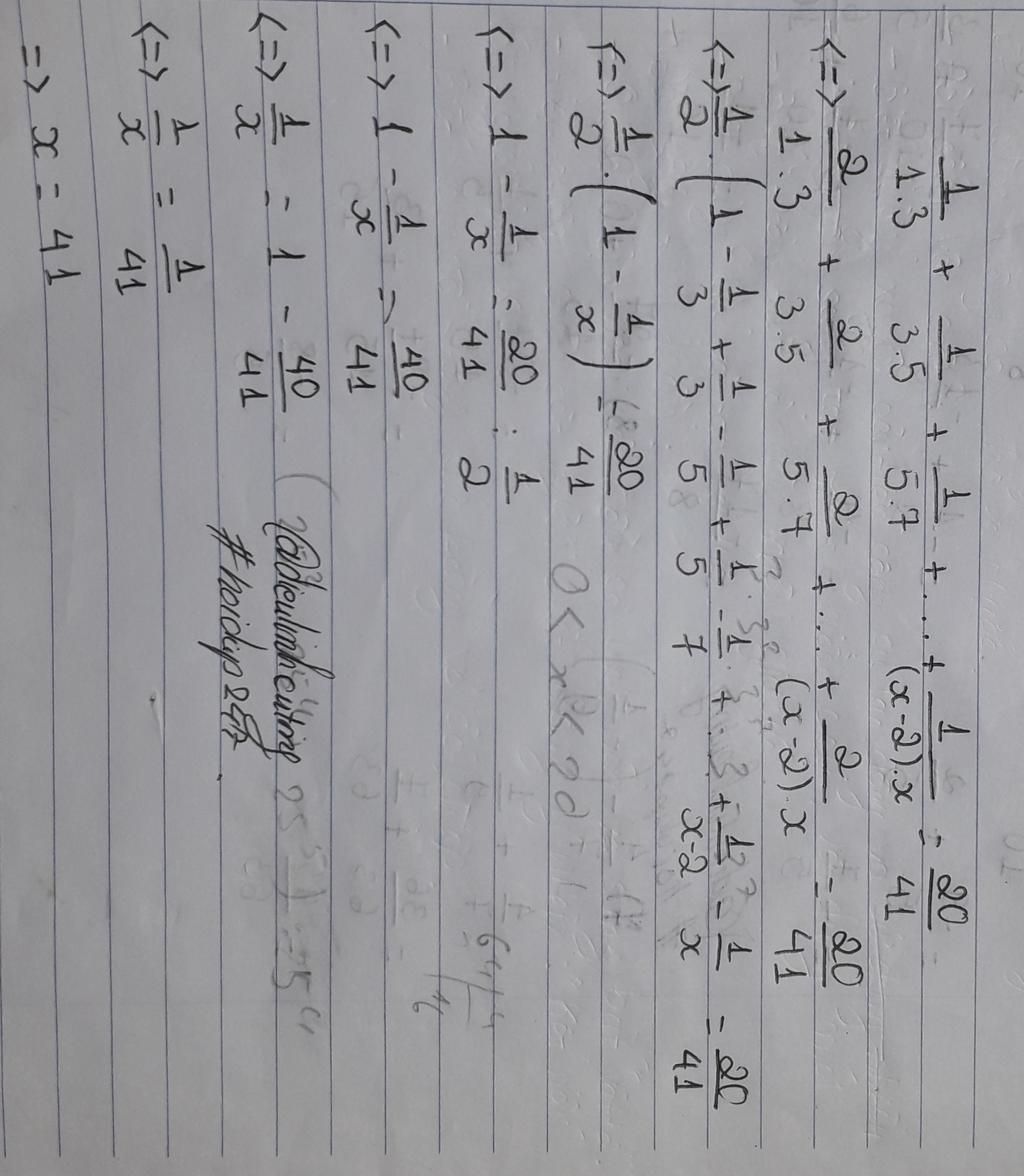 1/1.3 + 1/3.5 + 1/5.7 + .... + 1/(x-2).x = 20/41
<=> 2/1.3 + 2/3.5 + 2/5.7 + ... + 2/(x-2).x = 20/41
<=> 1/2 . (1 - 1/3 + 1/3 - 1/5 + 1/5 - 1/7 + .. + 1/x-2 - 1/x = 20/41
<=> 1/2 . (1 - 1/x) = 20/41
<=> 1 - 1/x = 20/41 : 1/2
<=> 1 - 1/x = 40/41
<=> 1/x = 1 - 40/41
#hoidap247.
<=> 1/x = 1/41
=> x = 41